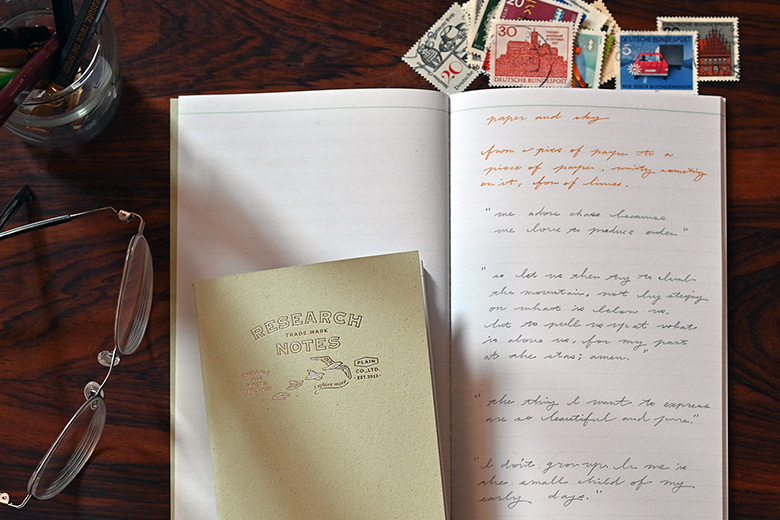 30
DEUTSCHE BUNDESPOST
20
5
DEUTSCHE BUNDESPOST
paper and sky
from a piece of paper to a
piece of paper, something
on it, form of lines.
"we adore chaos because
we love to produce order"
"so let us then try to climb
the mountain, not by steping
on what is below us,
but to pull us up at what
is above us. for my part
at the stas; amen."
"the thing I want to express
are so beautiful and pure."
"I don't grow up. In me is
the small child of my
early days."
RESEARCH
TRADE MARK
NOTES
explore more
PLAIN
CO., LTD.
· EST. 2015 ·